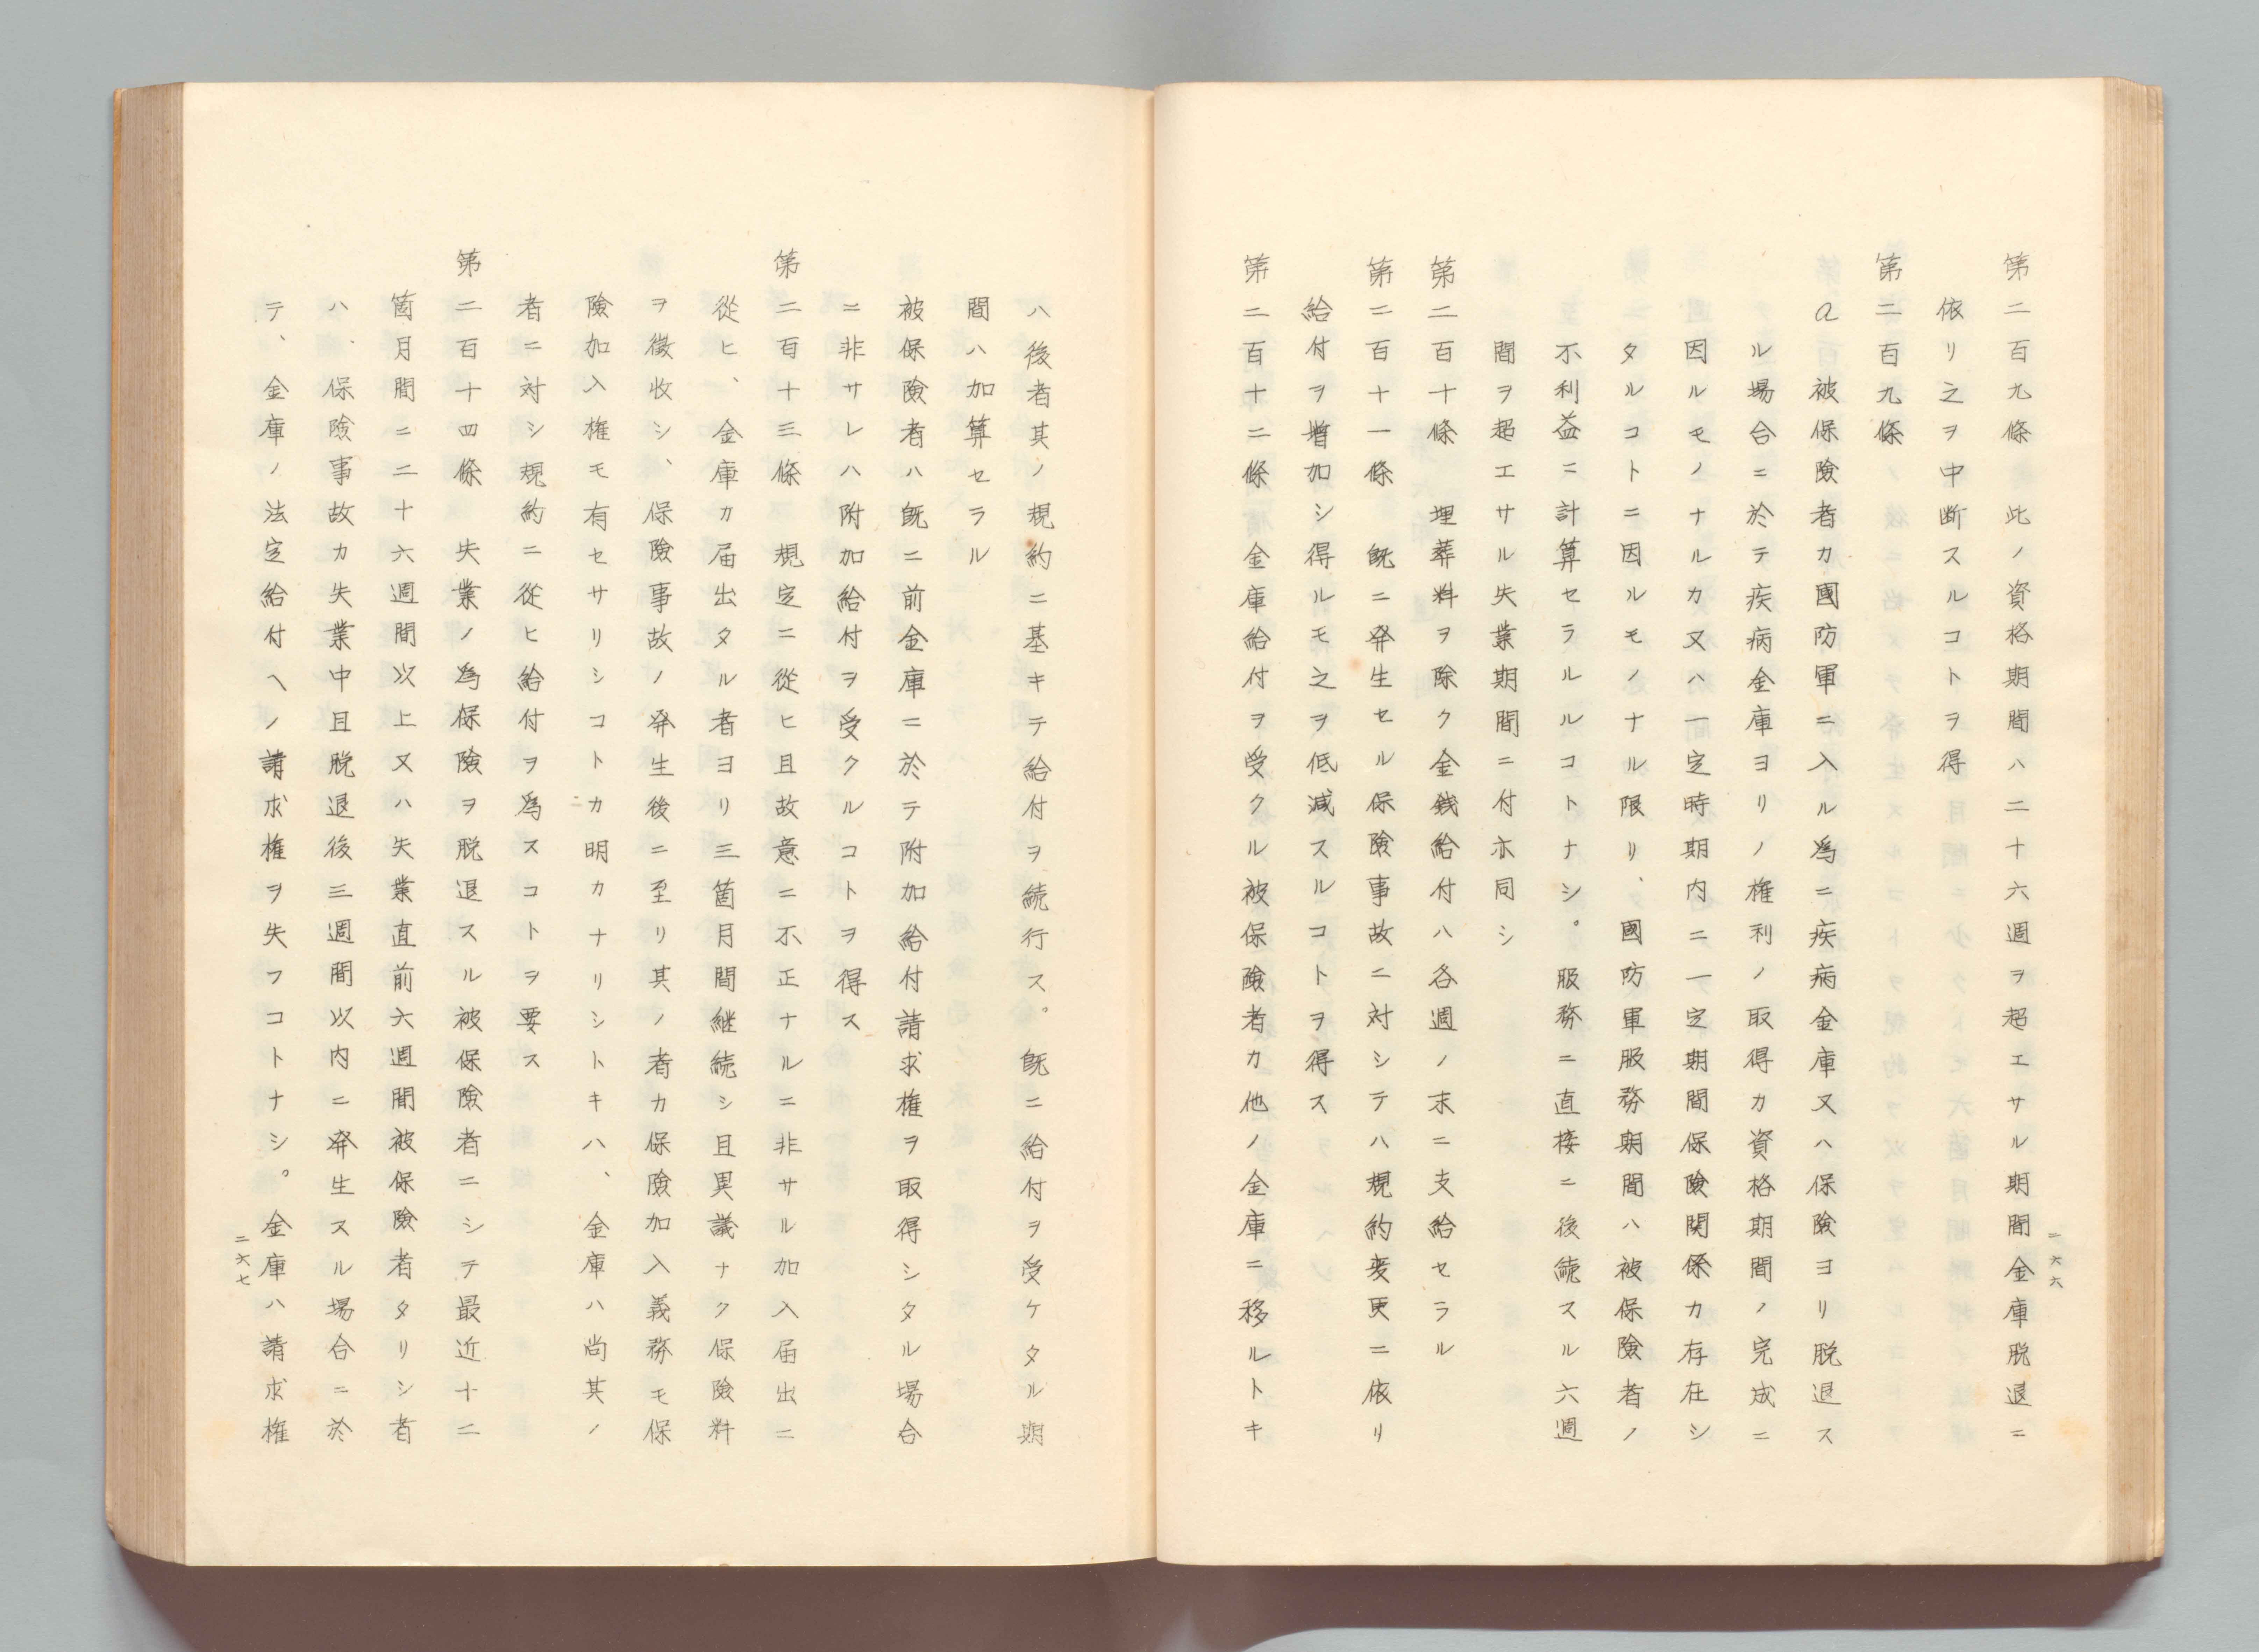 第二百九條　此ノ資格期間ハ二十六週ヲ超エサル期間金庫脱退ニ
依リ之ヲ中断スルコトヲ得
第二百九條
a　被保險者カ國防軍ニ入ル為ニ疾病金庫又ハ保険ヨリ脱退ス
ル場合ニ於テ疾病金庫ヨリノ権利ノ取得カ資格期間ノ完成ニ
因ルモノナルカ又ハ一定時期内ニ一定期間保険関係カ存在シ
タルコトニ因ルモノナル限リ、國防軍服務期間ハ被保險者ノ
不利益ニ計算セラルルコトナシ。服務ニ直接ニ後続スル六週
間ヲ超エサル失業期間ニ付亦同シ
第二百十條　埋葬料ヲ除ク金銭給付ハ各週ノ末ニ支給セラル
第二百十一條　既ニ発生セル保険事故ニ対シテハ規約変更ニ依リ
給付ヲ増加シ得ルモ之ヲ低減スルコトヲ得ス
第二百十二條　金庫給付ヲ受クル被保険者カ他ノ金庫ニ移ルトキ
二六六
ハ後者其ノ規約ニ基キテ給付ヲ続行ス。既ニ給付ヲ受ケタル期
間ハ加算セラル
被保險者ハ既ニ前金庫ニ於テ附加給付請求権ヲ取得シタル場合
ニ非サレハ附加給付ヲ受クルコトヲ得ス
第二百十三條　規定ニ従ヒ且故意ニ不正ナルニ非サル加入届出ニ
従ヒ、金庫カ届出タル者ヨリ三箇月間継続シ且異議ナク保険料
ヲ徴收シ、保険事故ノ発生後ニ至リ其ノ者カ保險加入義務モ保
險加入権モ有セサリシコトカ明カナリシトキハ、金庫ハ尚其ノ
者ニ対シ規約ニ従ヒ給付ヲ為スコトヲ要ス
第二百十四條　失業ノ為保險ヲ脱退スル被保險者ニシテ最近十二
箇月間ニ二十六週間以上又ハ失業直前六週間被保險者タリシ者
ハ、保険事故カ失業中且脱退後三週間以内ニ発生スル場合ニ於
テ、金庫ノ法定給付ヘノ請求権ヲ失フコトナシ。金庫ハ請求権
二六七